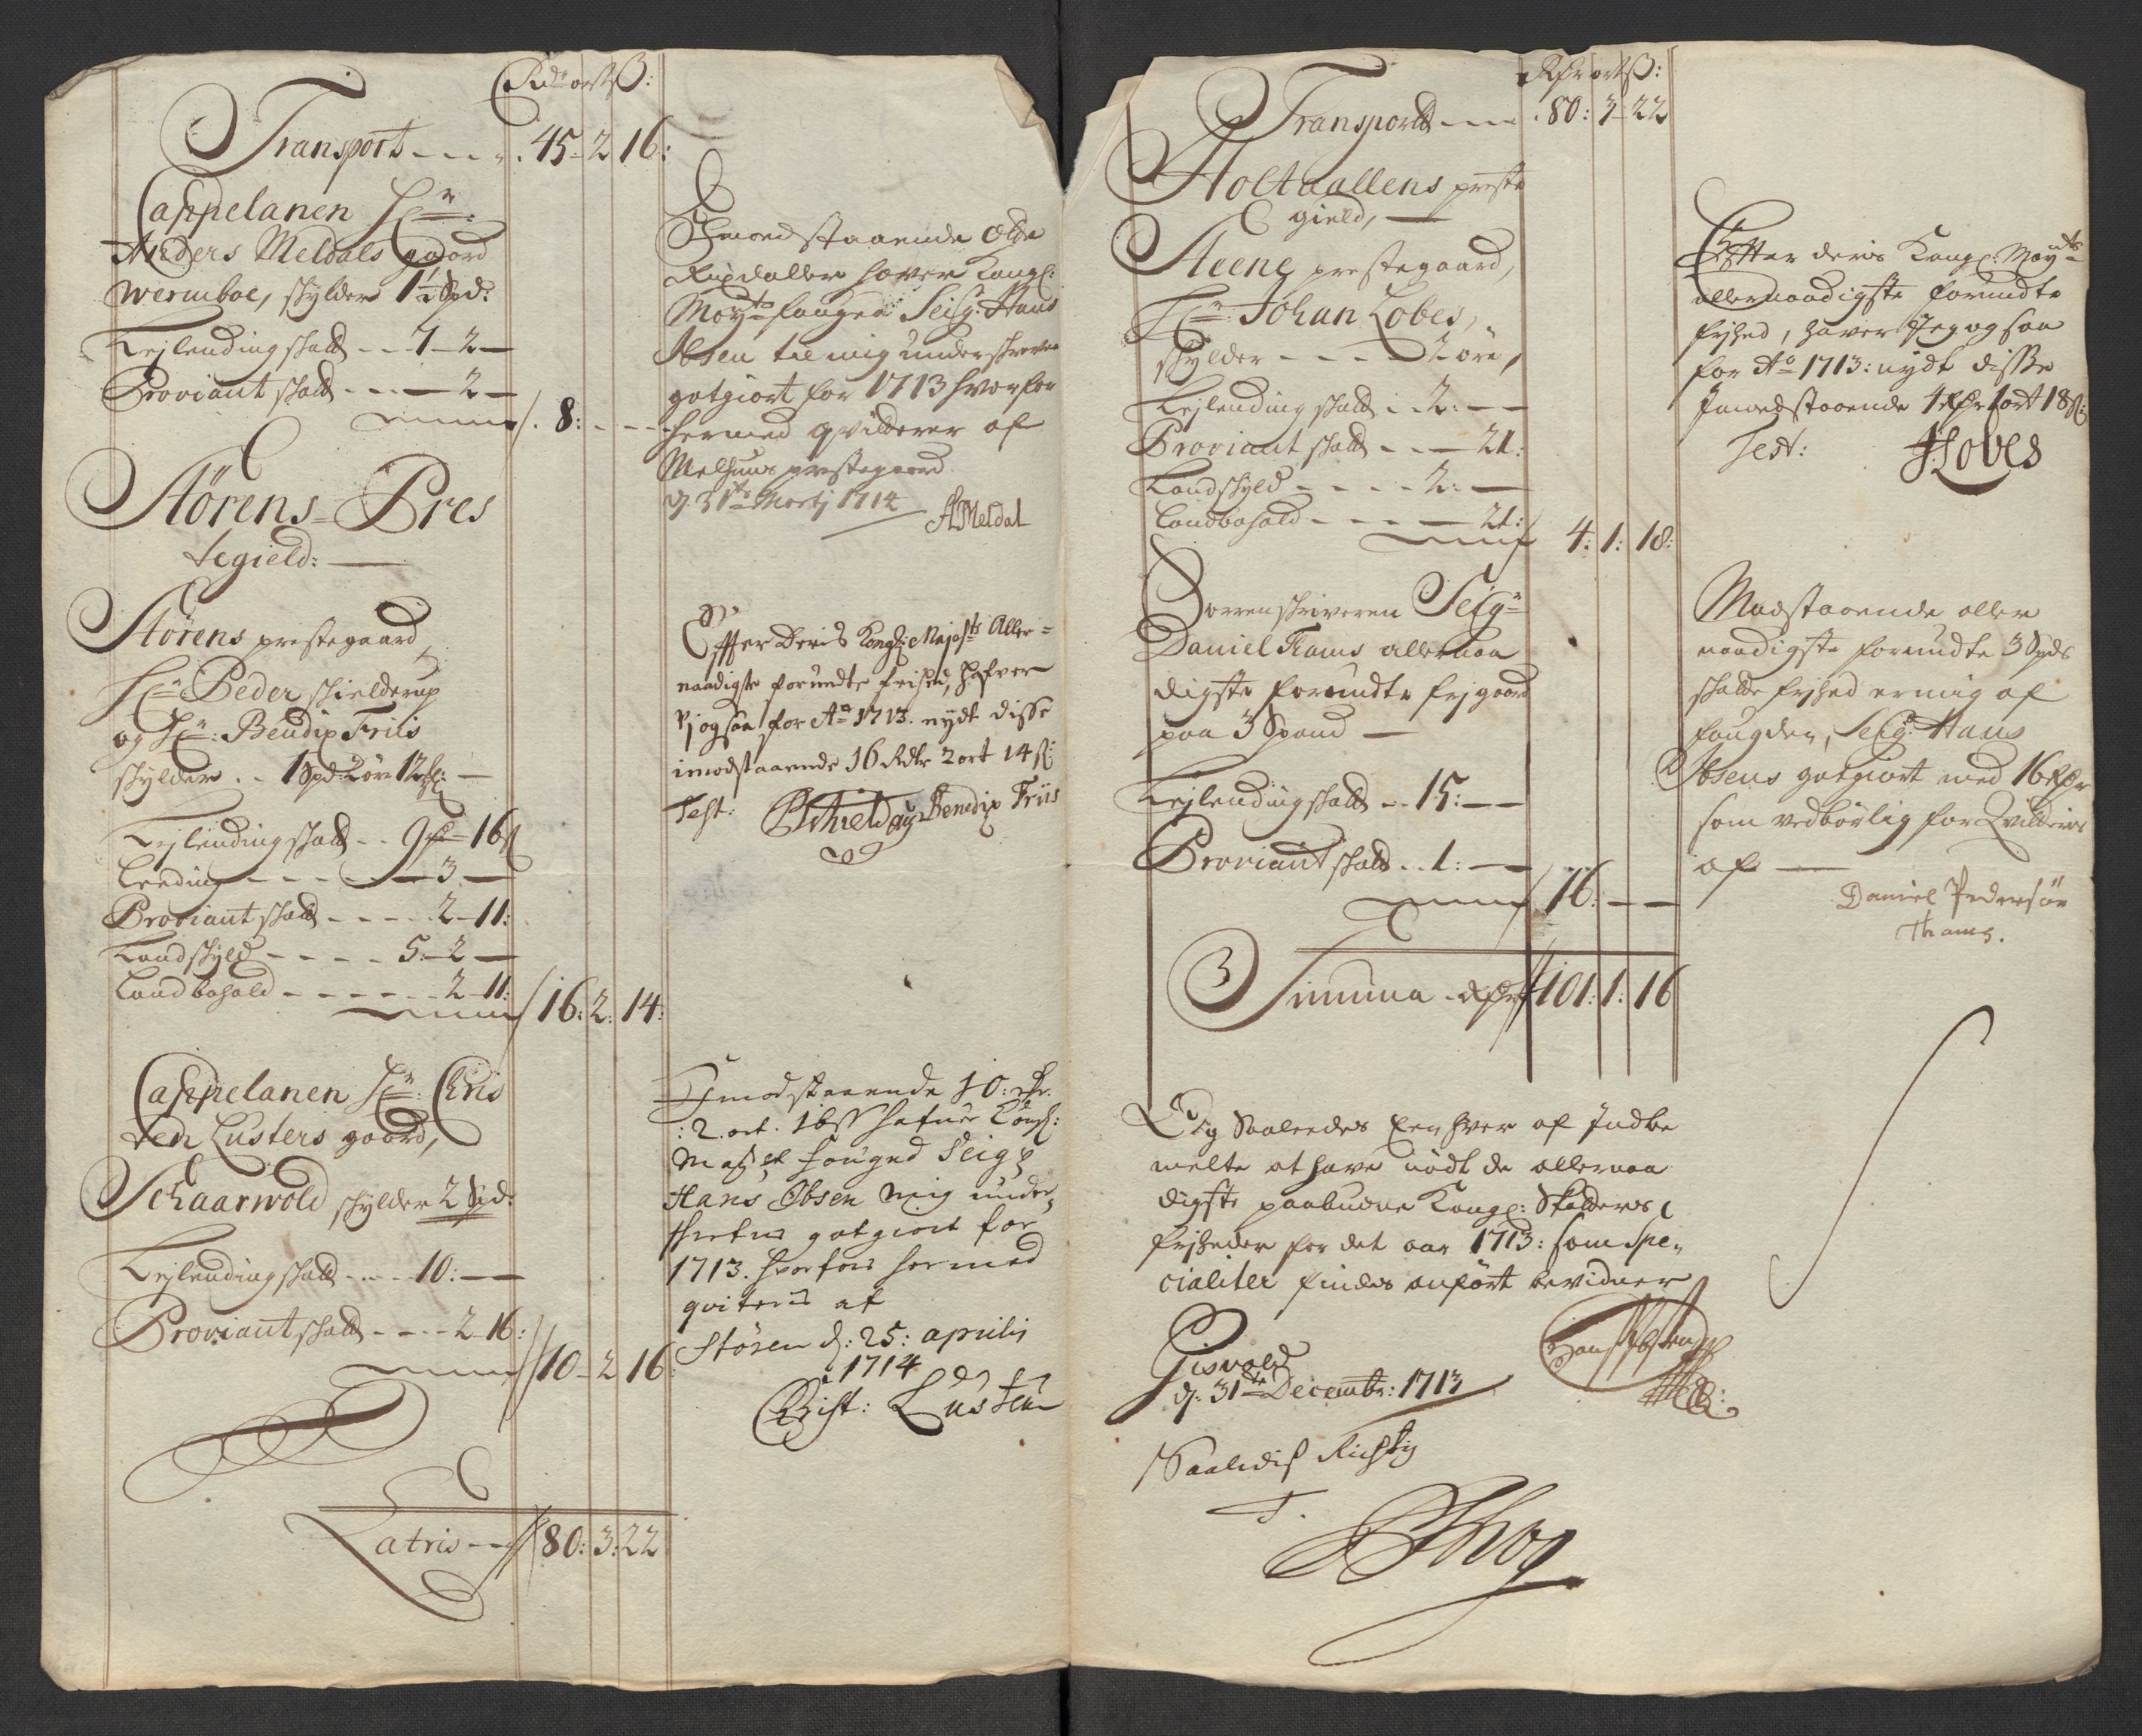 Rd ort ß:
Transport - - - . 45 - 2 16:
Cappelanen Hr:
Anders Meldals gaard
Wermboe, skylder 1½ Spd:
Leylending skatt - - 7 - 2 -
Proviant skatt - - - - 2 -
8: - -
Störens Pres
tegield: -
Störens prestegaard,
Hr Peder Skielderup
og Hr: Bendix Friis
skylder . - 1 Spd 2 öre 12
Leylending skatt - . 9 - 16
Leeding - - - - 3 -
Proviant skatt - - - - 2 - 11:
Landskyld - - - - 5 - 2 -
Landbohold - - - - - 2 - 11:
16: 2: 14:
Cappelanen Hr: Chris
ten Lusters gaard,
Schaarwold skylder 2 Spd:
Leylending skatt - - - 10: -
Proviant skatt - - - - 2 16:
10 - 2 16
Latris - - 80: 3: 22
Imodstaaende otte
Rixdaller haver Kongl:
Mayts fouged Seigr Hans
Ibsen til mig underskreven
gotgiort for 1713 hvorfor
hermed qvitterer af
Melhuus prestegaard
d. 31te Martj 1714
AMeldal
Effter Deris Kongl: Majests Aller-
naadigste forundte frihed, hafver
vj ogsaa for Ao 1713. nydt disse
imodstaaende 16 Rdr 2 ort 14 ß:
Test: PSchield og Bendix Friis
Imodstaaende 10: rdr.
: 2. ort. 16 ß hafuer Kongl:
Mayst fouged Seigr
Hans Ibsen mig under
skrefne gotgiort for
1713. hvorfor hermed
qviteris af
Stören d: 25: aprilis
1714
Christ: Lusten
Rdr ort ß:
Transport - - - . 80: 3 - 22
Holtaallens preste
gield, -
Aeene prestegaard,
Hr Johan Lobes,
skylder - - - - 2 öre,
Leylending skatt . . 2: - -
Proviant skatt - - - 21:
Landskyld - - - - 2: -
Landbohold - - - - 21:
4: 1: 18:
Sorrenskriveren Seigr
Daniel Thams allernaa
digste forundte frjgaard
paa 3 Spand -
Leylending skatt - - 15: - -
Proviant skatt . . 1: - -
16: - -
3 Summa - Rdr 101: 1: 16
Efter deris Kongl: Mayts
allernaadigste forundte
frjhed, haver Jeg ogsaa
for Ao 1713: nydt disse
Imodstaaende 4 Rdr 1 ort 18 ß
Test: JLobes
Modstaaende aller
naadigste forundte 3 Spds
skatte frjhed er mig af
fougden, Seigr Hans
Ibsens gotgiort med 16 Rdr
som vedbörlig for Qvitteris
af -
Daniel Pedersön
Thams.
Og Saaledes Een hver af Indbe
melte at have nödt de allernaa
digste paabudne Kongl: Skatters
frjheder for det aar 1713: som Spe,
cialiter findes anfört bevidner
Gisvold
d: 31te Decembr: 1713
Hans Ibsen
Saaledis Richtig
T.